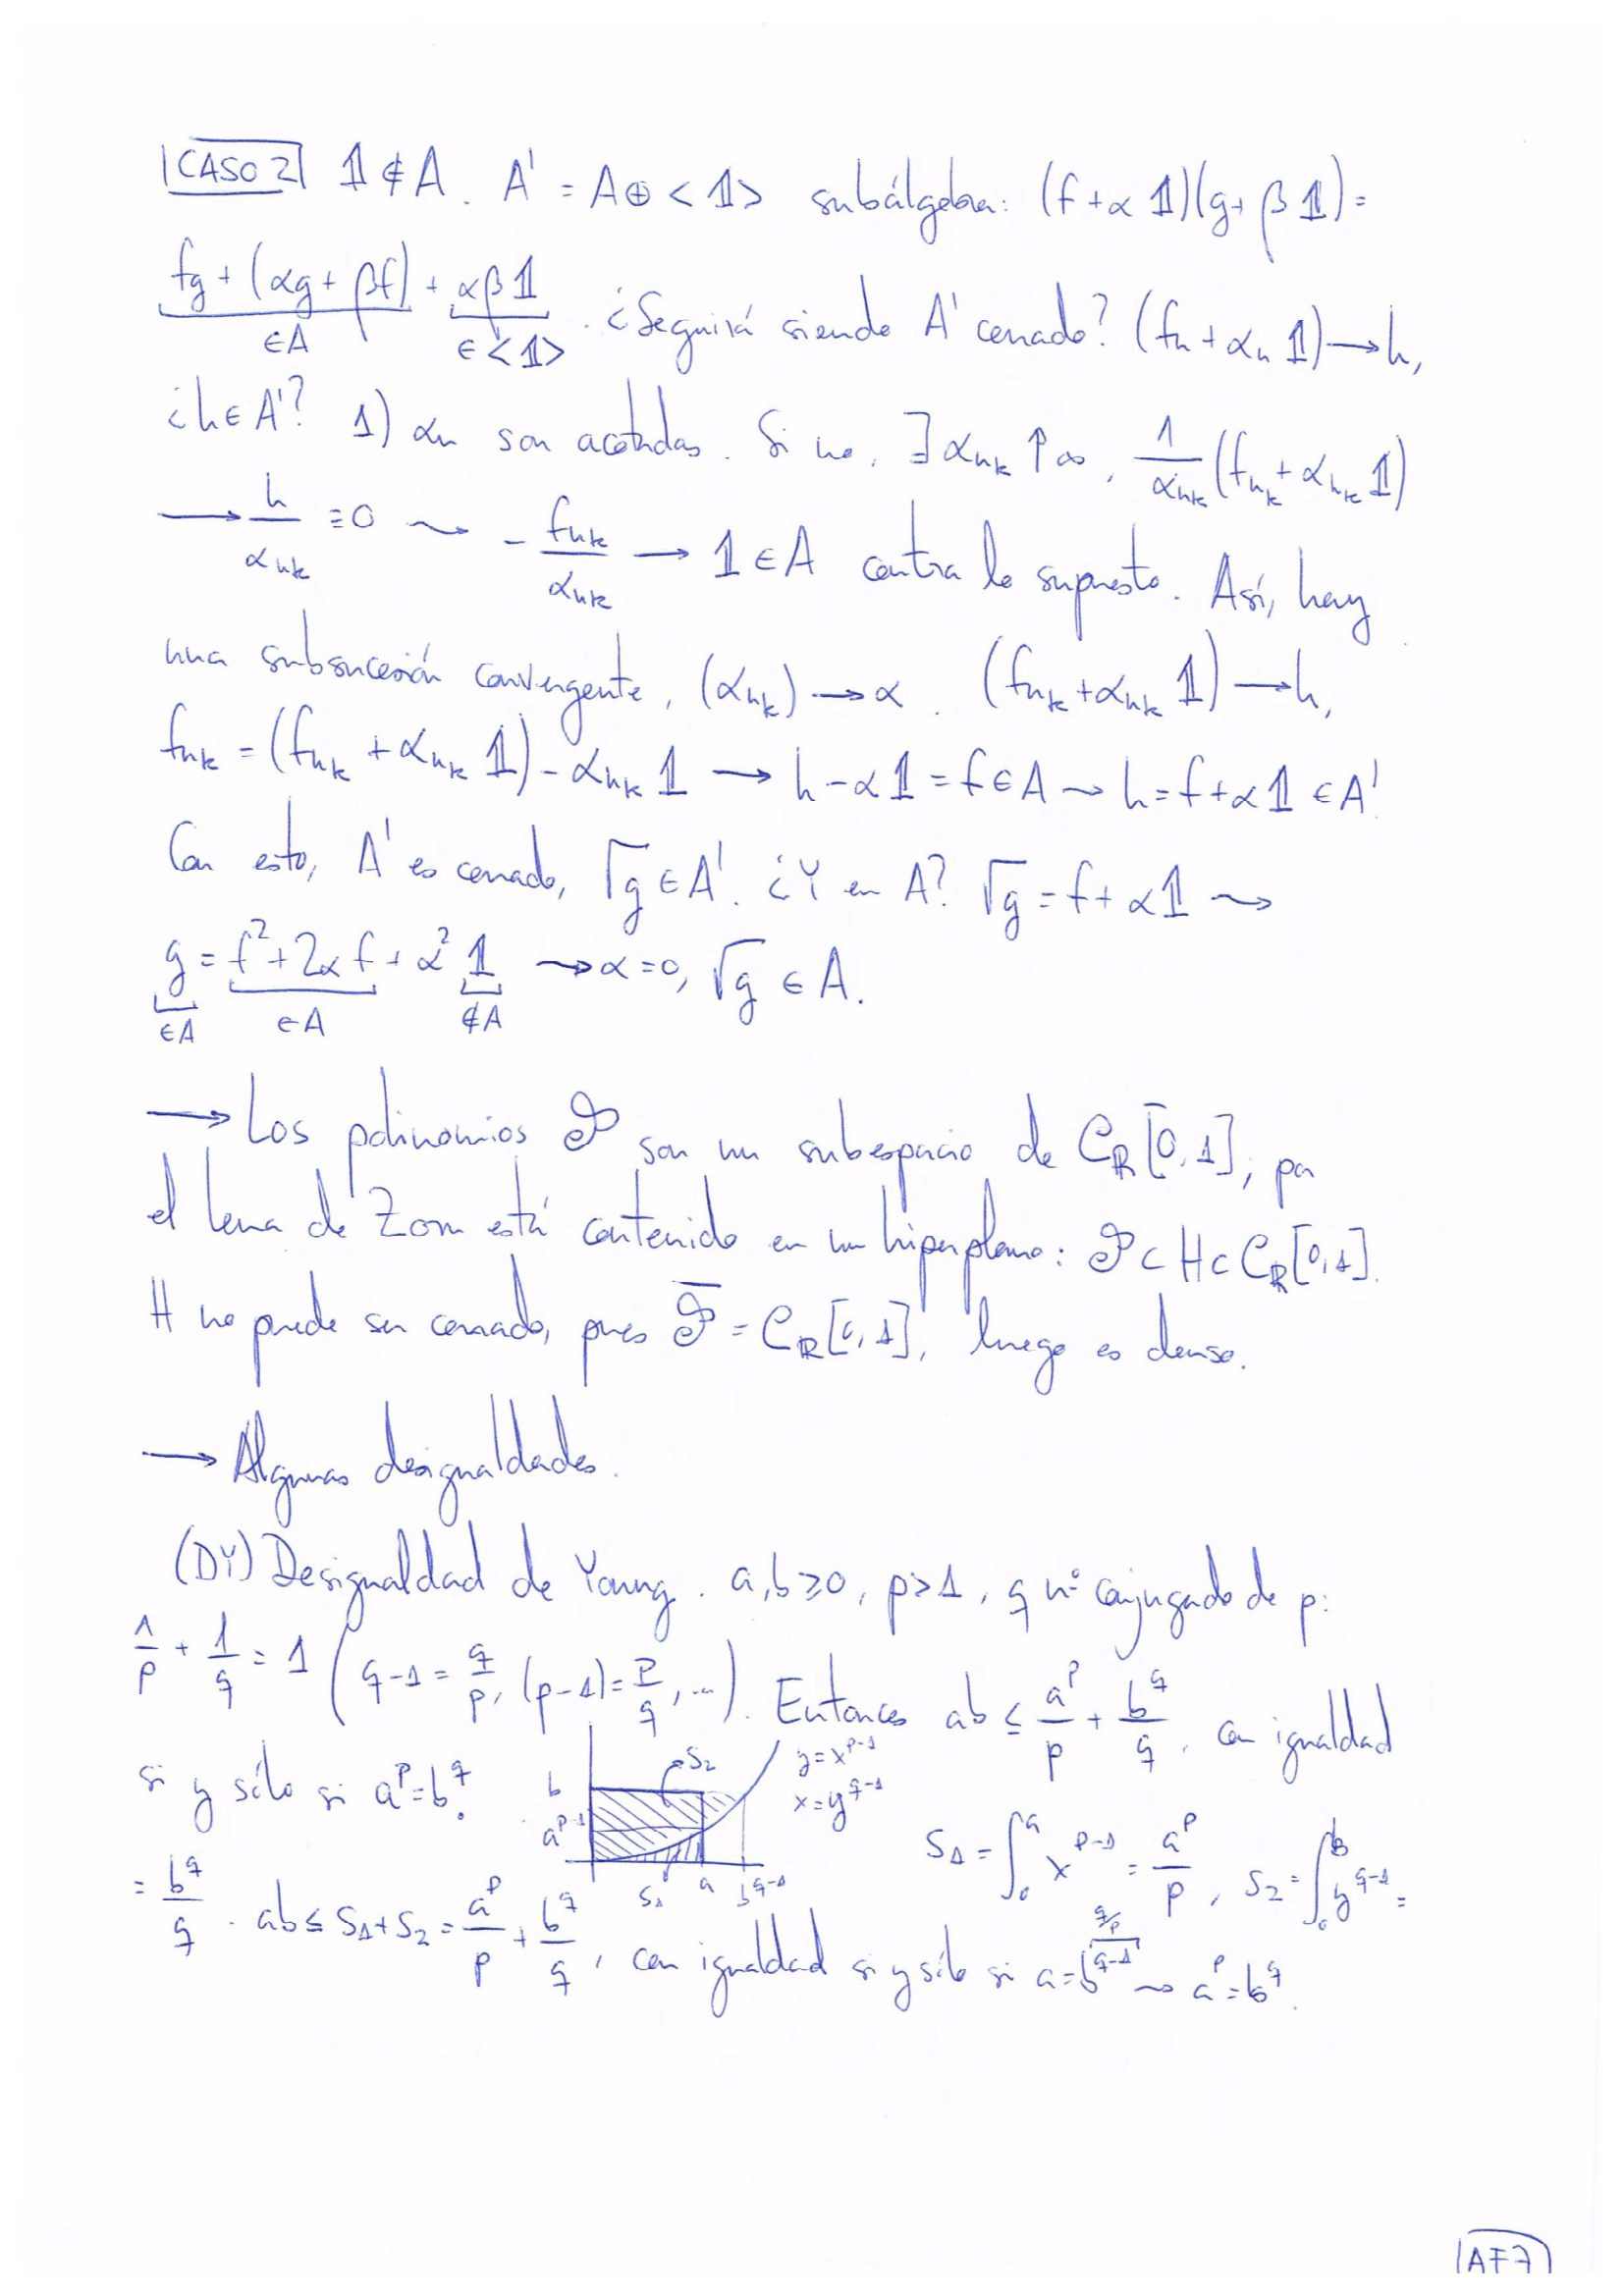 CASO 2 𝟙 ∉ A. A' = A ⊕ <𝟙> subálgebra: (f + α 𝟙)(g + β 𝟙) =
fg + (αg + βf) + αβ 𝟙. ¿Seguirá siendo A' cerrado? (fn + αn 𝟙) → h,
∈A ∈<𝟙>
¿h ∈ A'? 1) αn son acotadas. Si no, ∃ αnk ↑ ∞, 1/αnk (fnk + αnk 𝟙)
→ h/αnk ≡ 0 ⇝ - fnk/αnk → 𝟙 ∈ A contra lo supuesto. Así, hay
una subsucesión convergente, (αnk) → α. (fnk + αnk 𝟙) → h,
fnk = (fnk + αnk 𝟙) - αnk 𝟙 → h - α𝟙 = f ∈ A ⇝ h = f + α𝟙 ∈ A'.
Con esto, A' es cerrado, √g ∈ A'. ¿Y en A? √g = f + α𝟙 ⇝
g = f² + 2αf + α² 𝟙 ⇝ α = 0, √g ∈ A.
∈A ∈A ∉A
→ Los polinomios 𝒫 son un subespacio de Cℝ[0,1], por
el lema de Zorn está contenido en un hiperplano: 𝒫 ⊂ H ⊂ Cℝ[0,1].
H no puede ser cerrado, pues 𝒫̄ = Cℝ[0,1], luego es denso.
→ Algunas desigualdades.
(DY) Desigualdad de Young. a,b ≥ 0, p > 1, q nº conjugado de p:
1/p + 1/q = 1 (q-1 = q/p, (p-1) = p/q, ...). Entonces ab ≤ a^p/p + b^q/q, con igualdad
si y sólo si a^p = b^q.
b
a^{p-1}
S2
y = x^{p-1}
x = y^{q-1}
S1 a b^{q-1}
S1 = ∫₀^a x^{p-1} = a^p/p, S2 = ∫₀^b y^{q-1} =
= b^q/q. ab ≤ S1 + S2 = a^p/p + b^q/q, con igualdad si y sólo si a = b^{q-1} ⇝ a^p = b^q.
q/p
AF7